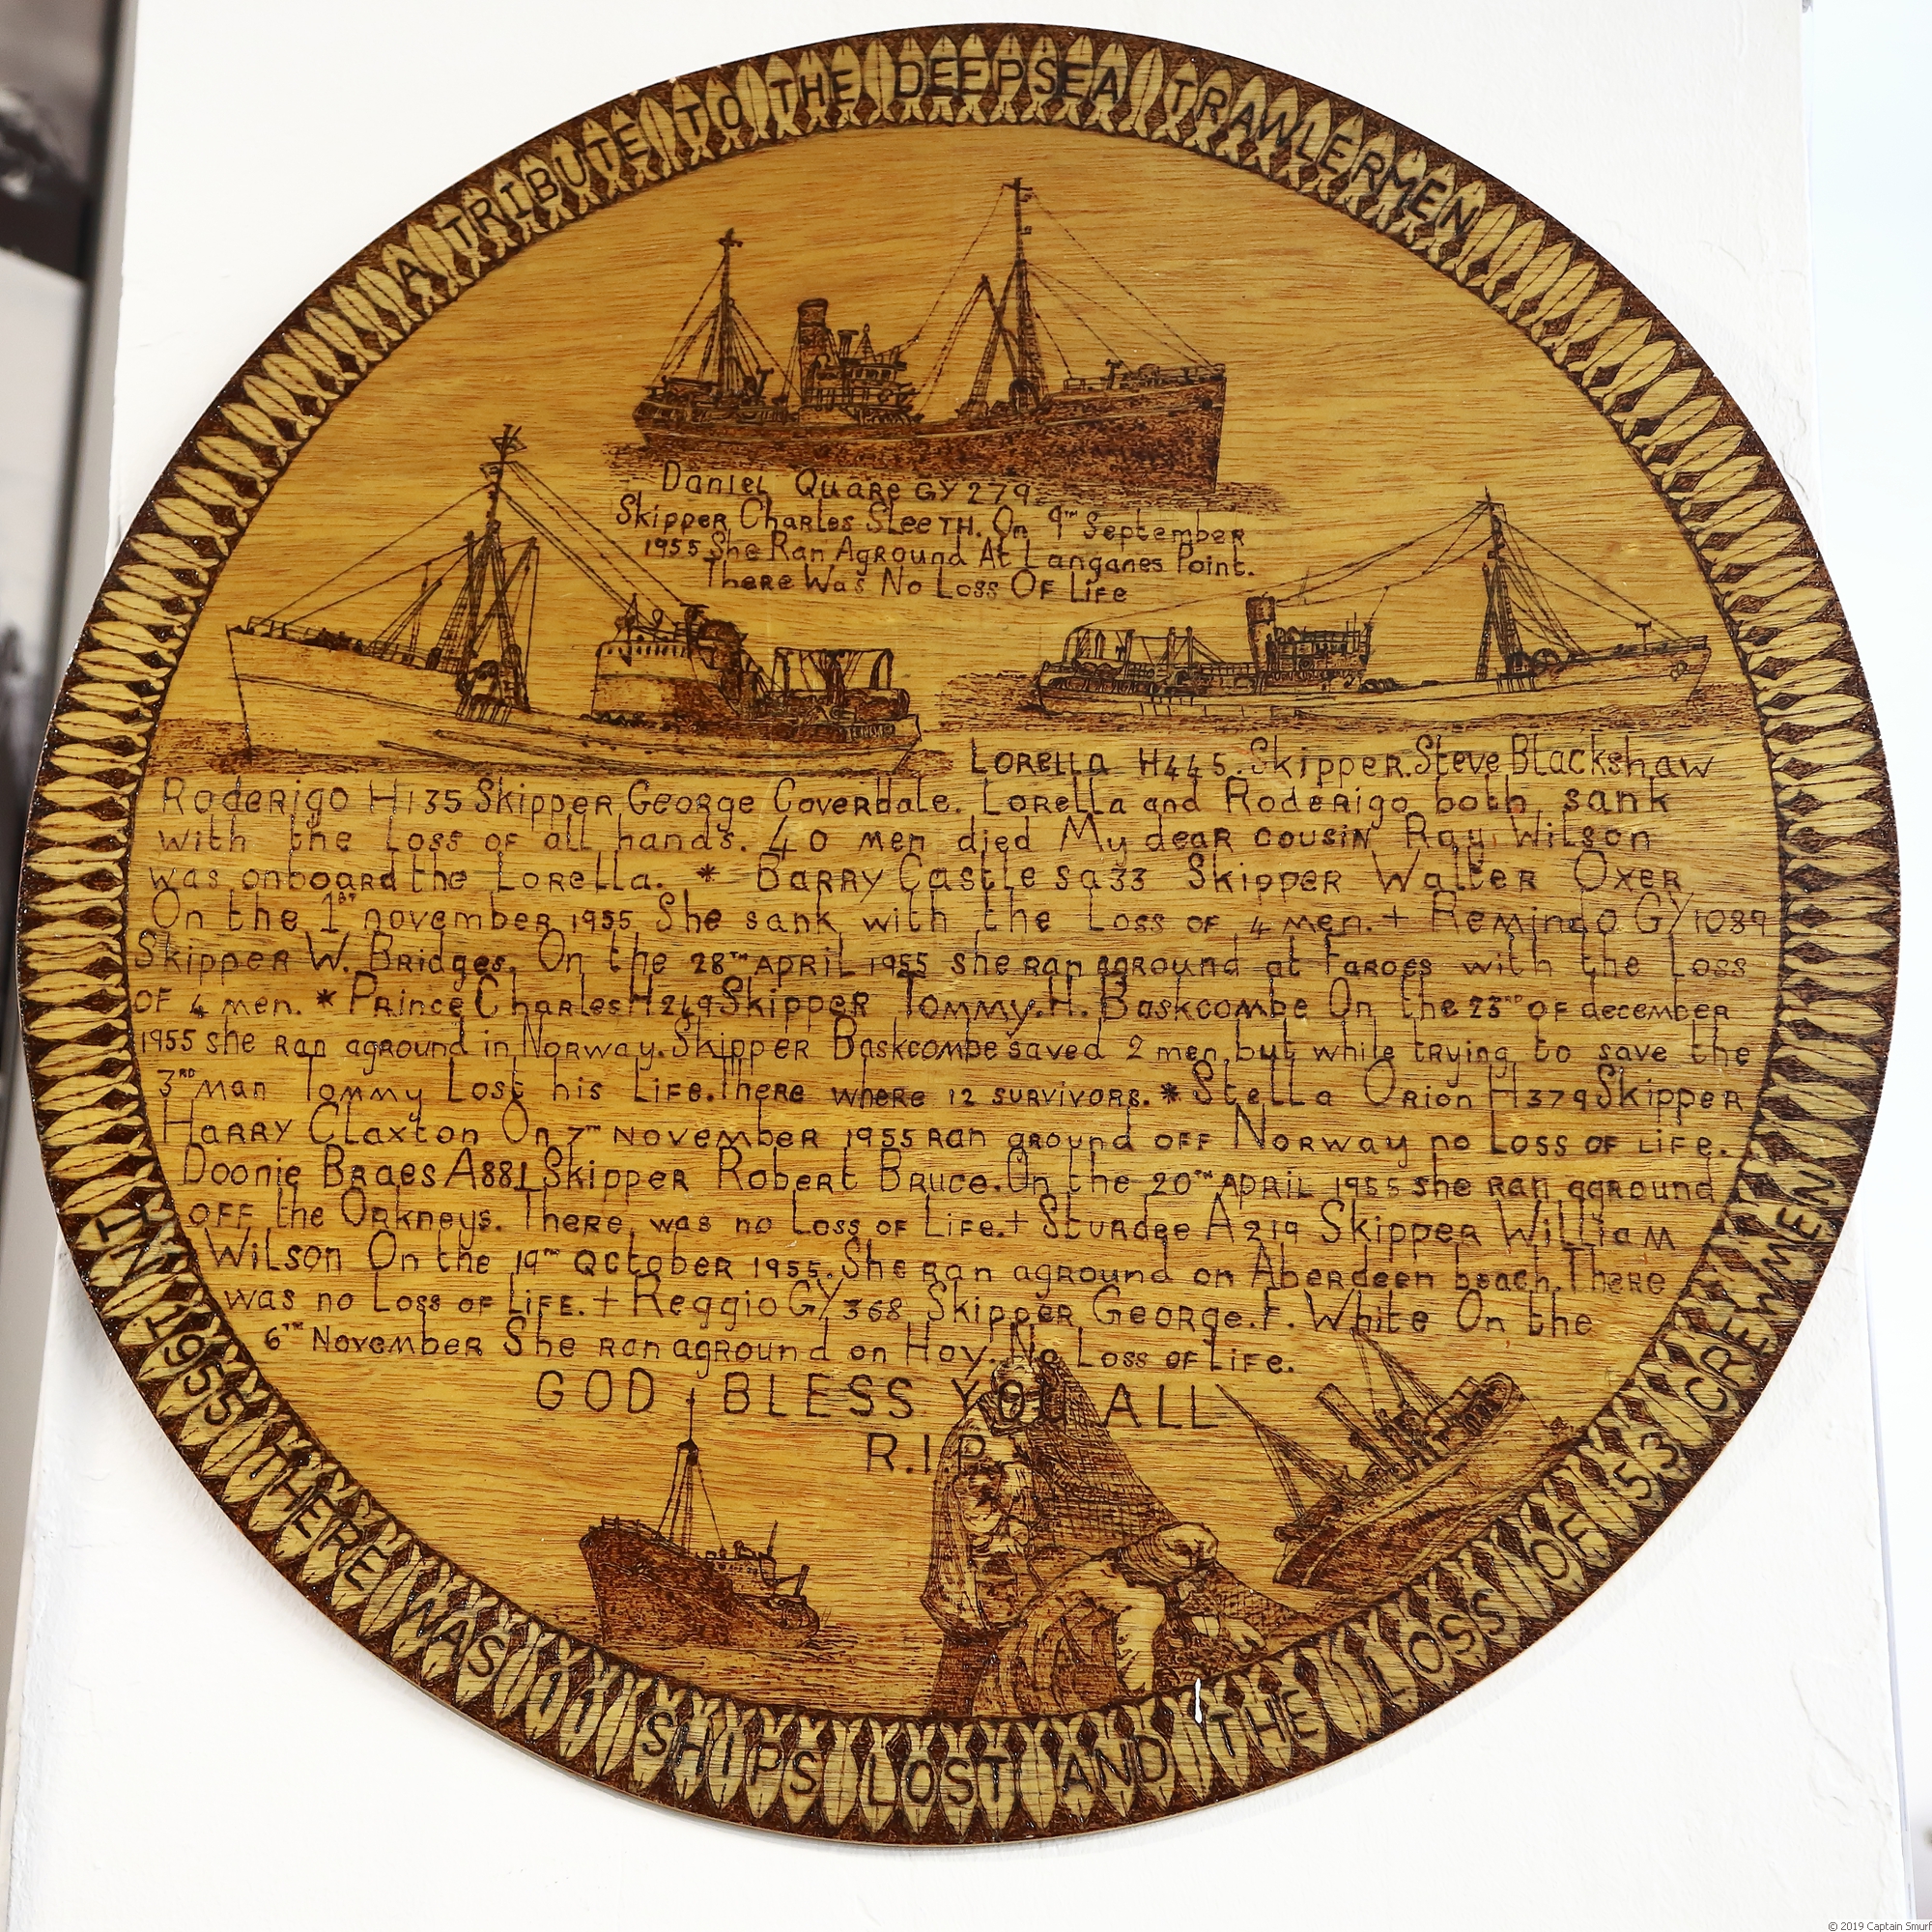 A TRIBUTE TO THE DEEPSEA TRAWLERMEN
Daniel Quare GY 279
Skipper Charles Sleeth. On 9TH September
1955 She Ran Aground At Langanes Point.
There Was No Loss Of Life
Lorella H445. Skipper. Steve Blackshaw
Roderigo H135 Skipper George Coverdale. Lorella and Roderigo both sank
with the Loss of all hands. 40 men died My dear cousin Ray Wilson
was onboard the Lorella. * Barry Castle sa33 Skipper Walter Oxer
On the 1ST november 1955 She sank with the Loss of 4 men. + Remindo GY1089
Skipper W. Bridges. On the 28TH April 1955 she ran aground at Faroes with the Loss
of 4 men. * Prince Charles H249 Skipper Tommy. H. Baskcombe On the 23RD of december
1955 she ran aground in Norway. Skipper Baskcombe saved 2 men, but while trying to save the
3RD man Tommy Lost his Life. There where 12 survivors. * Stella Orion H379 Skipper
Harry Claxton On 7TH November 1955 ran ground off Norway no Loss of life.
Doonie Braes A881 Skipper Robert Bruce. On the 20TH April 1955 she ran aground
off the Orkneys. There was no Loss of Life. + Sturdee A219 Skipper William
Wilson On the 19TH October 1955. She ran aground on Aberdeen beach. There
was no Loss of Life. + Reggio GY 368 Skipper George. F. White On the
6TH November She ran aground on Hoy. No Loss of Life.
GOD BLESS YOU ALL
R.I.P
IN 1955 THERE WAS 11 SHIPS LOST AND THE LOSS OF 53 CREWMEN
© 2019 Captain Smurf